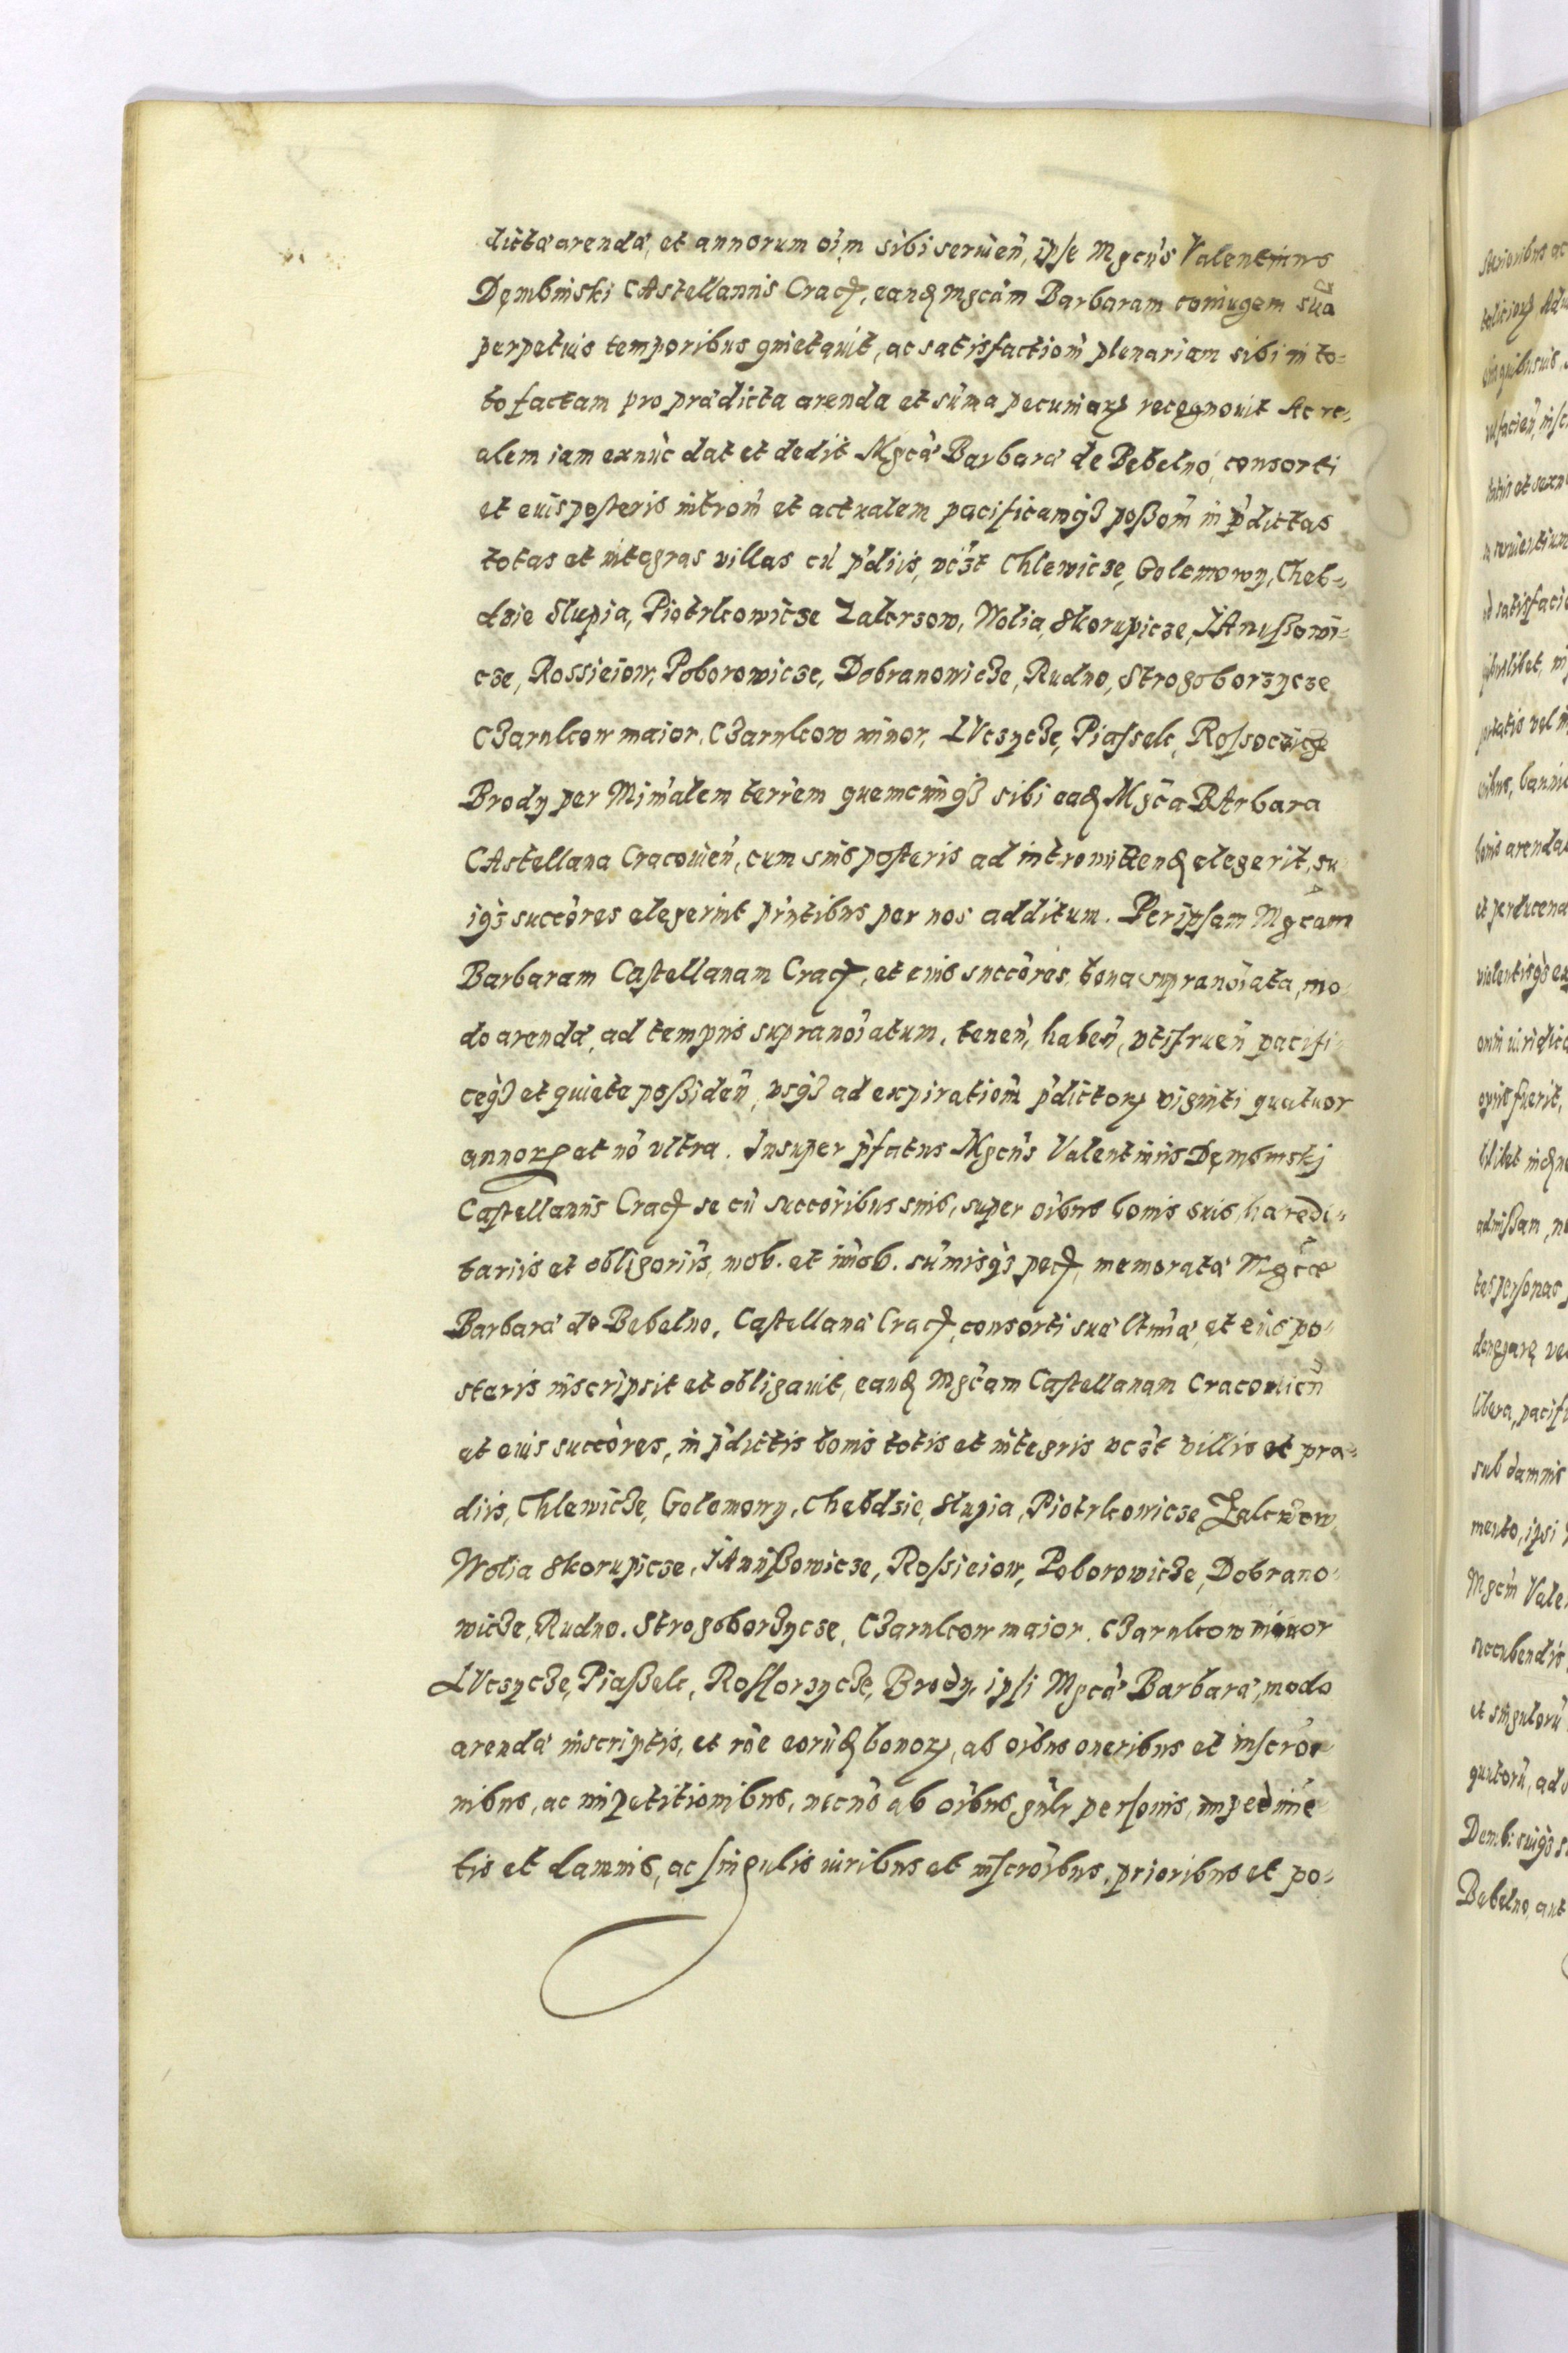 dictæ arendæ, et annorum oim̄ sibi seruien̄, ipse Mgcūs Valentinus
Dęmbinski CAstellanus Cracꝭ, eandꝫ mgcām Barbaram coniugem suā
perpetuis temporibus quietauit, ac satisfactiom̄ plenariam sibi in to=
to factam pro prædicta arenda et sūma pecuniarꝝ recognouit Ac re=
alem iam exnūc dat et dedit Mgcǣ Barbaræ de Bebelno, consorti
et eius posteris introm̄ et actualem pacificamqꝫ poßom̄ in p̄dictas
totas et integras villas cū p̄diis, vcꝫt Chlewicze, Golemowy, Cheb=
dzie Slupia, Piotrkowicze Zakrzow, Wolia, Skorupicze, IAnußowi=
cze, Rossieiow, Poborowicze, Dobranowicze, Rudno, Strogoborzycze
Czarnkow maior, Czarnkow minor, LVczycze, Piassek, Rossoczicze
Brody per Min̄alem terr̄em quemcunqꝫ sibi eadꝫ Mgcā BArbara
CAstellana Cracouien̄, cum suis posteris ad intromittendꝫ elegerit, eu
iqꝫ succōres elegerint p̄ntibus per nos additum. Per ipsam Mgcām
Barbaram Castellanam Cracꝭ, et eius succōres, bona supranoīata, mo=
do arendæ, ad tempus supranoīatum, tenen̄, haben̄, vtifruen̄ pacifi=
ceqꝫ et quiete poßiden̄, vsqꝫ ad expiratiom̄ p̄dictorꝝ viginti quatuor
annorꝝ et nō vltra. Insuper p̄fatus Mgcūs Valentinus Dęmbinskj
Castellanus Cracꝭ se cū succōribus suis, super oībus bonis suis, hæredi=
tariis et obligoriis, mob. et im̄ob. sūmisqꝫ pecꝭ, memoratæ Mgcæ
Barbaræ de Bebelno, Castellanæ Cracꝭ, consorti suæ Chm̄æ, et eius po=
steris inscripsit et obligauit, eandꝫ Mgcām Castellanam Cracouien̄
et eius succōres, in p̄dictis bonis totis et integris vcꝫt villis et præ=
diis, Chlewicze, Golemowy, Chebdzie, Slupia, Piotrkowicze Zakrzow,
Wolia Skorupicze, IAnußowicze, Rossieiow, Poborowicze, Dobrano=
wicze, Rudno, Strogoborzycze, Czarnkow maior, Czarnkow minor
LVczycze, Piaßek, Rossorzycze, Brody, ipsi Mgcæ Barbaræ, modo
arendæ inscriptis, et rōe eorūdꝫ bonorꝝ, ab oībus oneribus et inscrō=
nibus, ac impetitionibus, necnō ab oībus gn̄lr personis, impedimē=
tis et damnis, ac singulis iuribus et inscrōibus, prioribus et po=